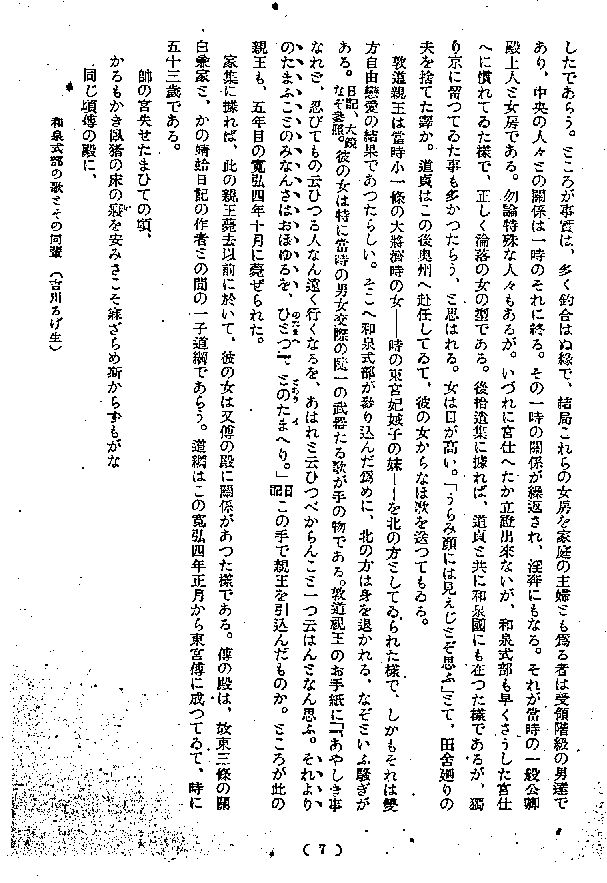 したであらう。ところが事實は、多く釣合はぬ緣で、結局これらの女房を家庭の主婦とも爲る者は受領階級の男達で
あり、中央の人々との關係は一時のそれに終る。その一時の關係が繰返され、淫奔にもなる。それが當時の一般公卿
殿上人と女房である。勿論特殊な人々もあるが。いづれに宮仕へたか立證出來ないが、和泉式部も早くさうした宮仕
へに慣れてゐた様で、正しく淪落の女の型である。後拾遺集に據れば、道貞と共に和泉國にも在つた様であるが、獨
り京に留つてゐた事も多かつたらう、と思はれる。女は目が高い。「うらみ顔には見えじとぞ思ふ」とて、田舎廻りの
夫を捨てた譯か。道貞はこの後奥州へ赴任してゐて、彼の女からなほ歌を送つてもゐる。
敦道親王は當時小一條の大將濟時の女――時の東宮妃娍子の妹――を北の方としてゐられた様で、しかもそれは雙
方自由戀愛の結果であつたらしい。そこへ和泉式部が參り込んだ爲めに、北の方は身を退かれる、なぞといふ騒ぎが
ある。日記、大鏡なぞ參照。彼の女は特に當時の男女交際の唯一の武器たる歌が手の物である。敦道親王のお手紙に「あやしき事
なれど、忍びてもの云ひつる人なん遠く行くなるを、あはれと云ひつべからんこと一つ云はんとなん思ふ。それより
のたまふことのみなんさはおぼゆるを、ひとつのたまへ」とのたまへり。」日記この手で親王を引込んだものか。ところが此の
親王も、五年目の寛弘四年十月に薨ぜられた。
家集に據れば、此の親王薨去以前に於いて、彼の女は又傅の殿に關係があつた様である。傅の殿は、故東三條の關
白兼家と、かの蜻蛉日記の作者との間の一子道綱であらう。道綱はこの寛弘四年正月から東宮傅に成つてゐて、時に
五十三歲である。
帥の宮失せたまひての頃、
かるもかき臥猪の床の寢を安みさこそ寐ざらめ斯からずもがな
同じ頃傅の殿に、
和泉式部の歌とその同輩 （吉川しげ生）
( 7 )